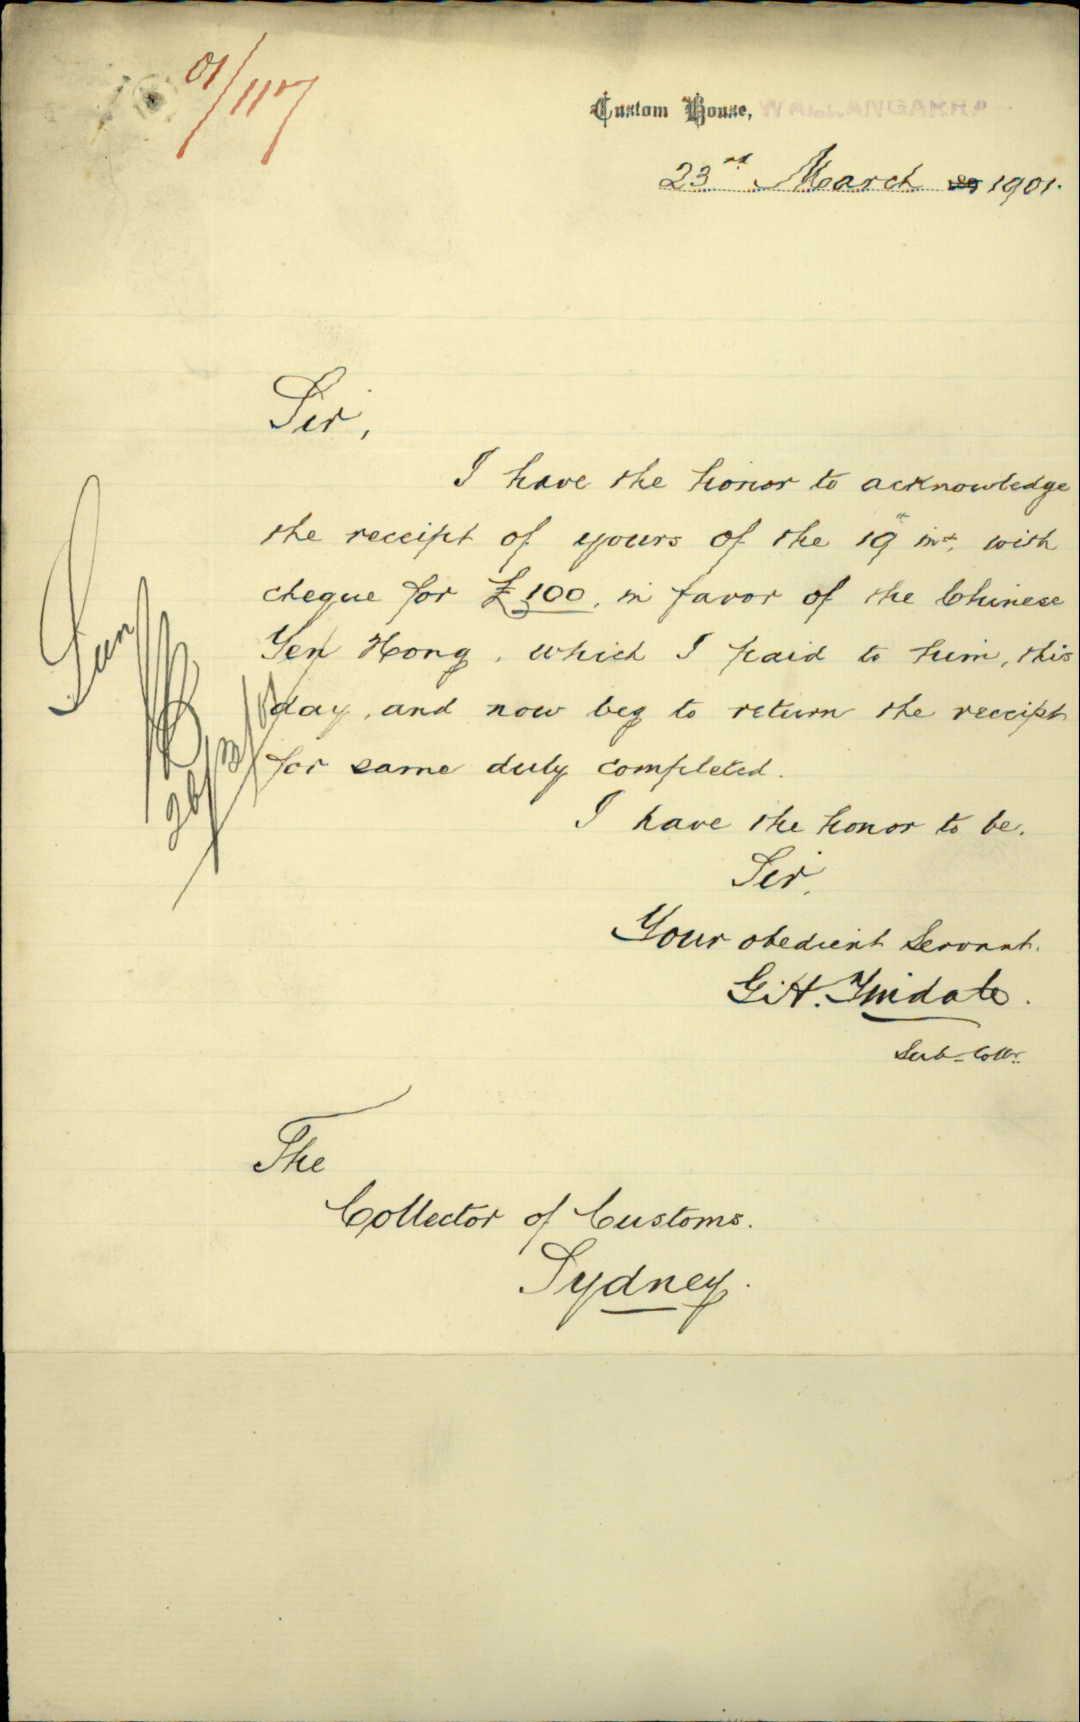 01/1107
Custom House, WALLANGARRA
23rd March 1901.
Sir,
I have the honor to acknowledge
the receipt of yours of the 19th inst. with
cheque for £100, in favor of the Chinese
Yen Hong, which I paid to him, this
day, and now beg to return the receipt
for same duly completed.
I have the honor to be.
Sir,
Your obedient Servant.
G.H. Tindale.
Sub-Collr.
26/3/01
The
Collector of Customs.
Sydney.